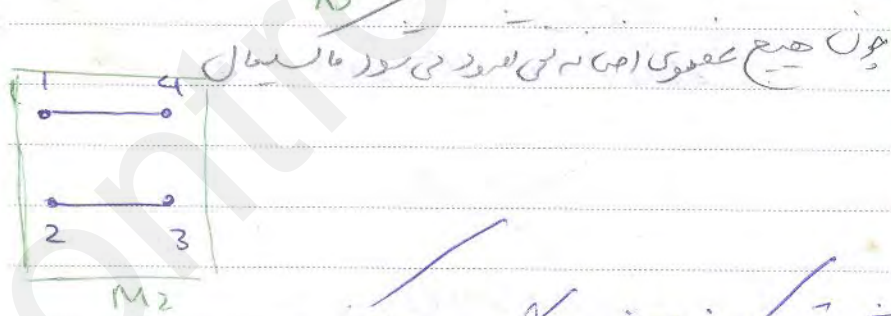 چون هیچ عضوی اضافه نمی شود می شود ماکسیمال
1 4
2 3
M2